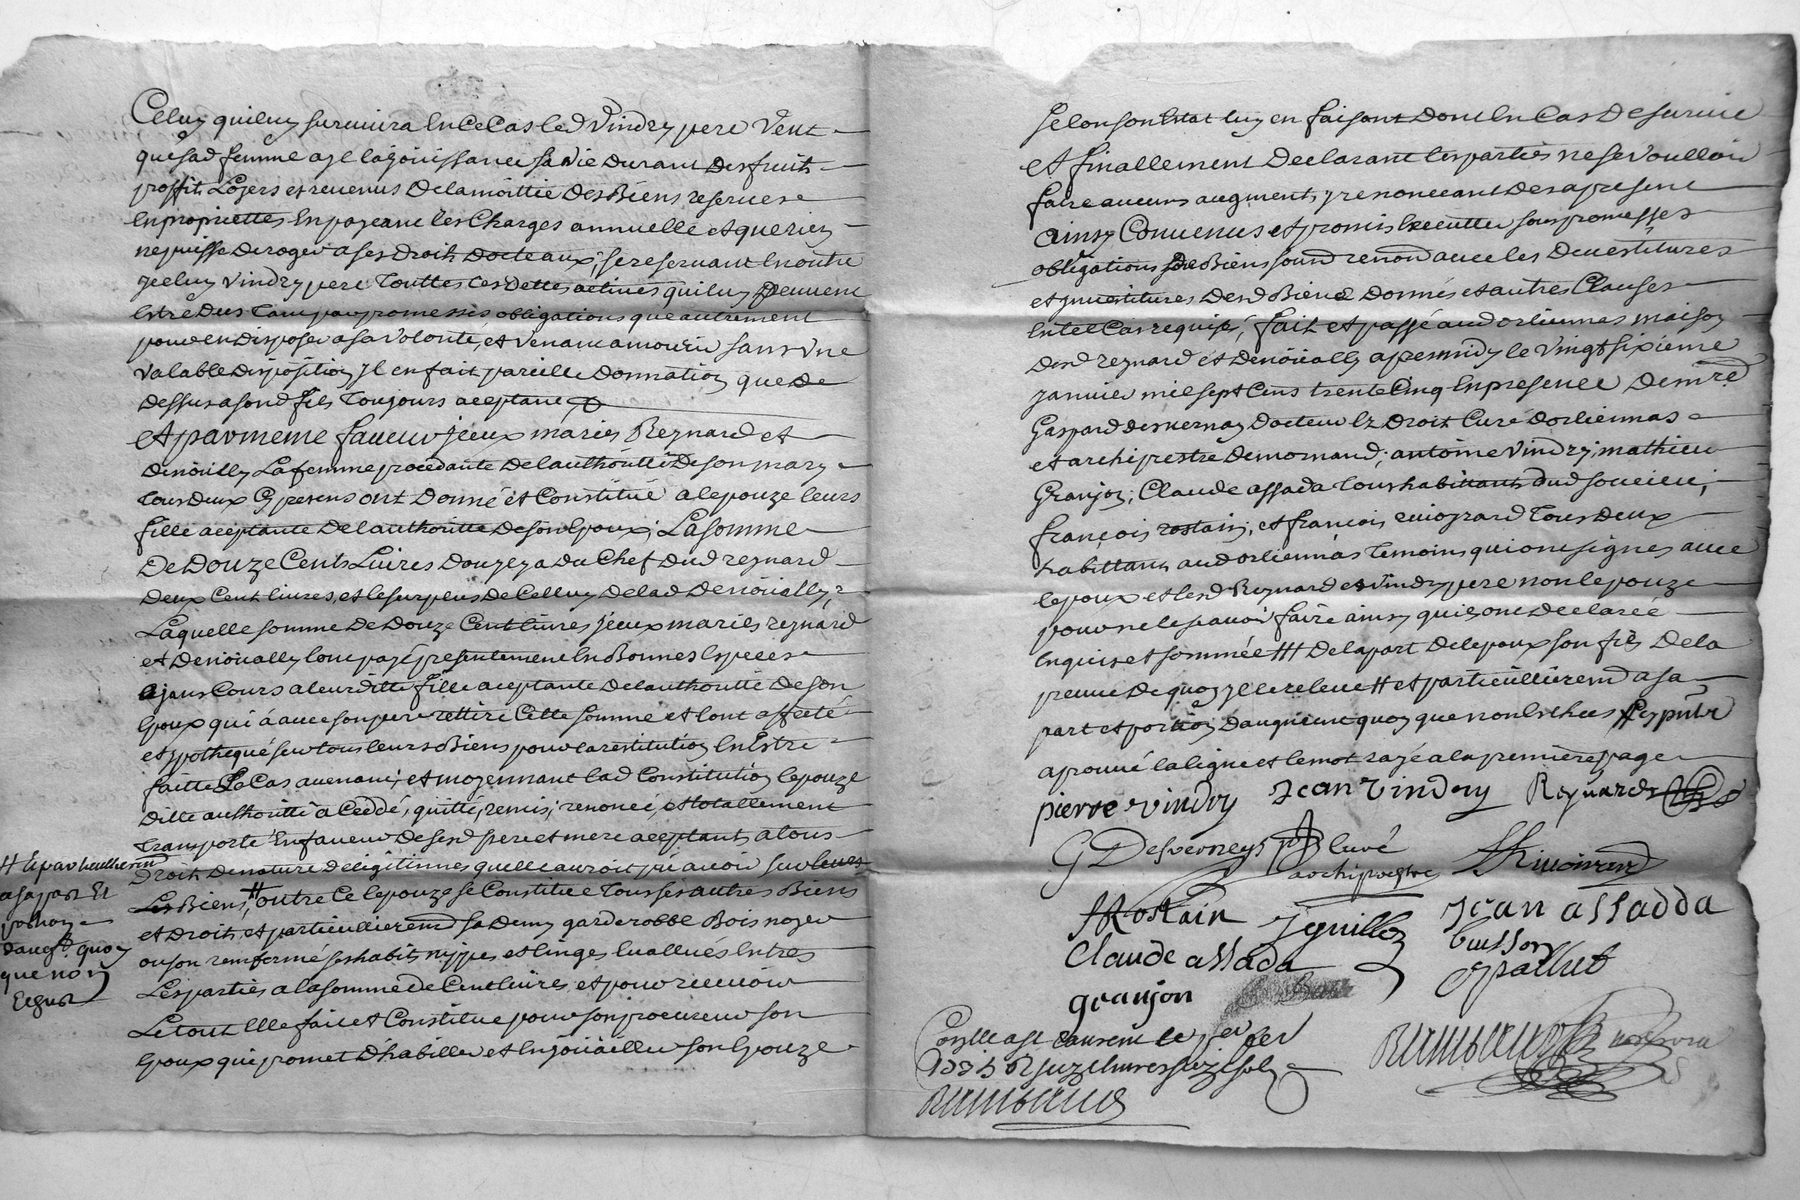 Celuy quiluy survivra En Ce Cas led Vindry pere Veut
que sad femme aye la jouissance sa Vie Durant Des fruits
proffits Loyers et revenus De la moittie Des Biens reserves
En proprietté En payant les Charges annuelle et que rien
ne puisse Deroger a ses Droits Dotteaux; se reservant En outre
jceluy Vindry pere Touttes les Dettes actives quiluy peuvent
Estre Dues Tant par promesses obligations que autrement
pour en Disposer a sa Volonté, et Venant a mourir sans Une
Valable Disposition Jl en fait pareille Donnation que De
Dessus a sond fils Toujours aceptant
Et par meme faveur jceux mariés Reynard et
Denoually La femme procedante De lauthoritté De son mary
Tous Deux Cy presens ont Donné et Constitué a lepouze leurs
fille aceptante De lauthoritte De son Epoux, La somme
De Douze Cents Livres Dou il y a Du Chef Dud reynard
Deux Cent livres, et le surplus De Celluy De lad Denoually,
Laquelle somme De Douze Cent livres jceux mariés reynard
et Denoually lont payé presentement En Bonnes Especes
ayant Cours a leurditte fille aceptante De lauthoritté De son
Epoux qui á avec son pere rettiré Cette somme et lont affecté
et ypothequé sur tous leurs Biens pour la restitution En Estre
faitte Le Cas avenant; et moyennant lad Constitution lepouze
ditte authorittè à Cedde, quitté, remis, renoncé, et totallement
Transporté En faveur De sesd pere et mere aceptants a tous
Droits De nature De legitimes quelle auroit pû avoir sur leurs
Les Biens, # outre Ce lepouze se Constitue Tous ses autres Biens
et Droits, et particullieremt sa Demy garderobbe Bois noyer
ou son remfermé ses habits nippes et linges Evallués Entres
Les parties a la somme de Cent livres et pour recevoir
Le tout Elle fait et Constitue pour son procureur son
Epoux qui promet D'habiller et Enjoüailler son Epouze
# Et particullieremt
a sa part Et
portion
daugt quoy
que non
Echus
selon son Estat luy en faisant Dont En Cas De survie
et finallement Declarant les parties ne se Voulloir
faire aucuns augments, y renonceant Des a present
ainsy Convenus et promis Executter sous promesses
obligations De Biens soumd renond avec les Devestitures
et jnvestitures Desd Biens Donnés et autres Clauses
En tel Cas requises, fait et passé aud orliennas maison
Desd reynard et Denoually apres midy le Vingt sixiéme
janvier mil sept Cens trente Cinq En presence De mre
Gaspard desverney Docteur Ez Droit Curé Dorliennas
et archiprestre De mornand, antoine Vindry, mathieu
Granjon, Claude assada Tous habittants dud soucieu,
françois rostain, et francois rivoyrard Tous Deux
habittans aud orliennas Temoins qui ont signés avec
lepoux et lesd Reynard et Vindry pere non lepouze
pour ne le scavoir faire ainsy quils ont Declarée
Enquise et sommée ### De la part De lepoux son fils De la
preuve De quoy jl le releve # et particullieremt a sa
part et portion daugment quoy que non Echus
aprouvé la ligne et le mot rayé a la premiere page
pierre vindry Jean Vindry Reynard
G Desverneys Curé
archiprestre Rivoirard
f Rostain Jguillon Jean assadda
Claude assada buisson
granjon Gpallud
Conlle a St Laurent le fer
1735 R